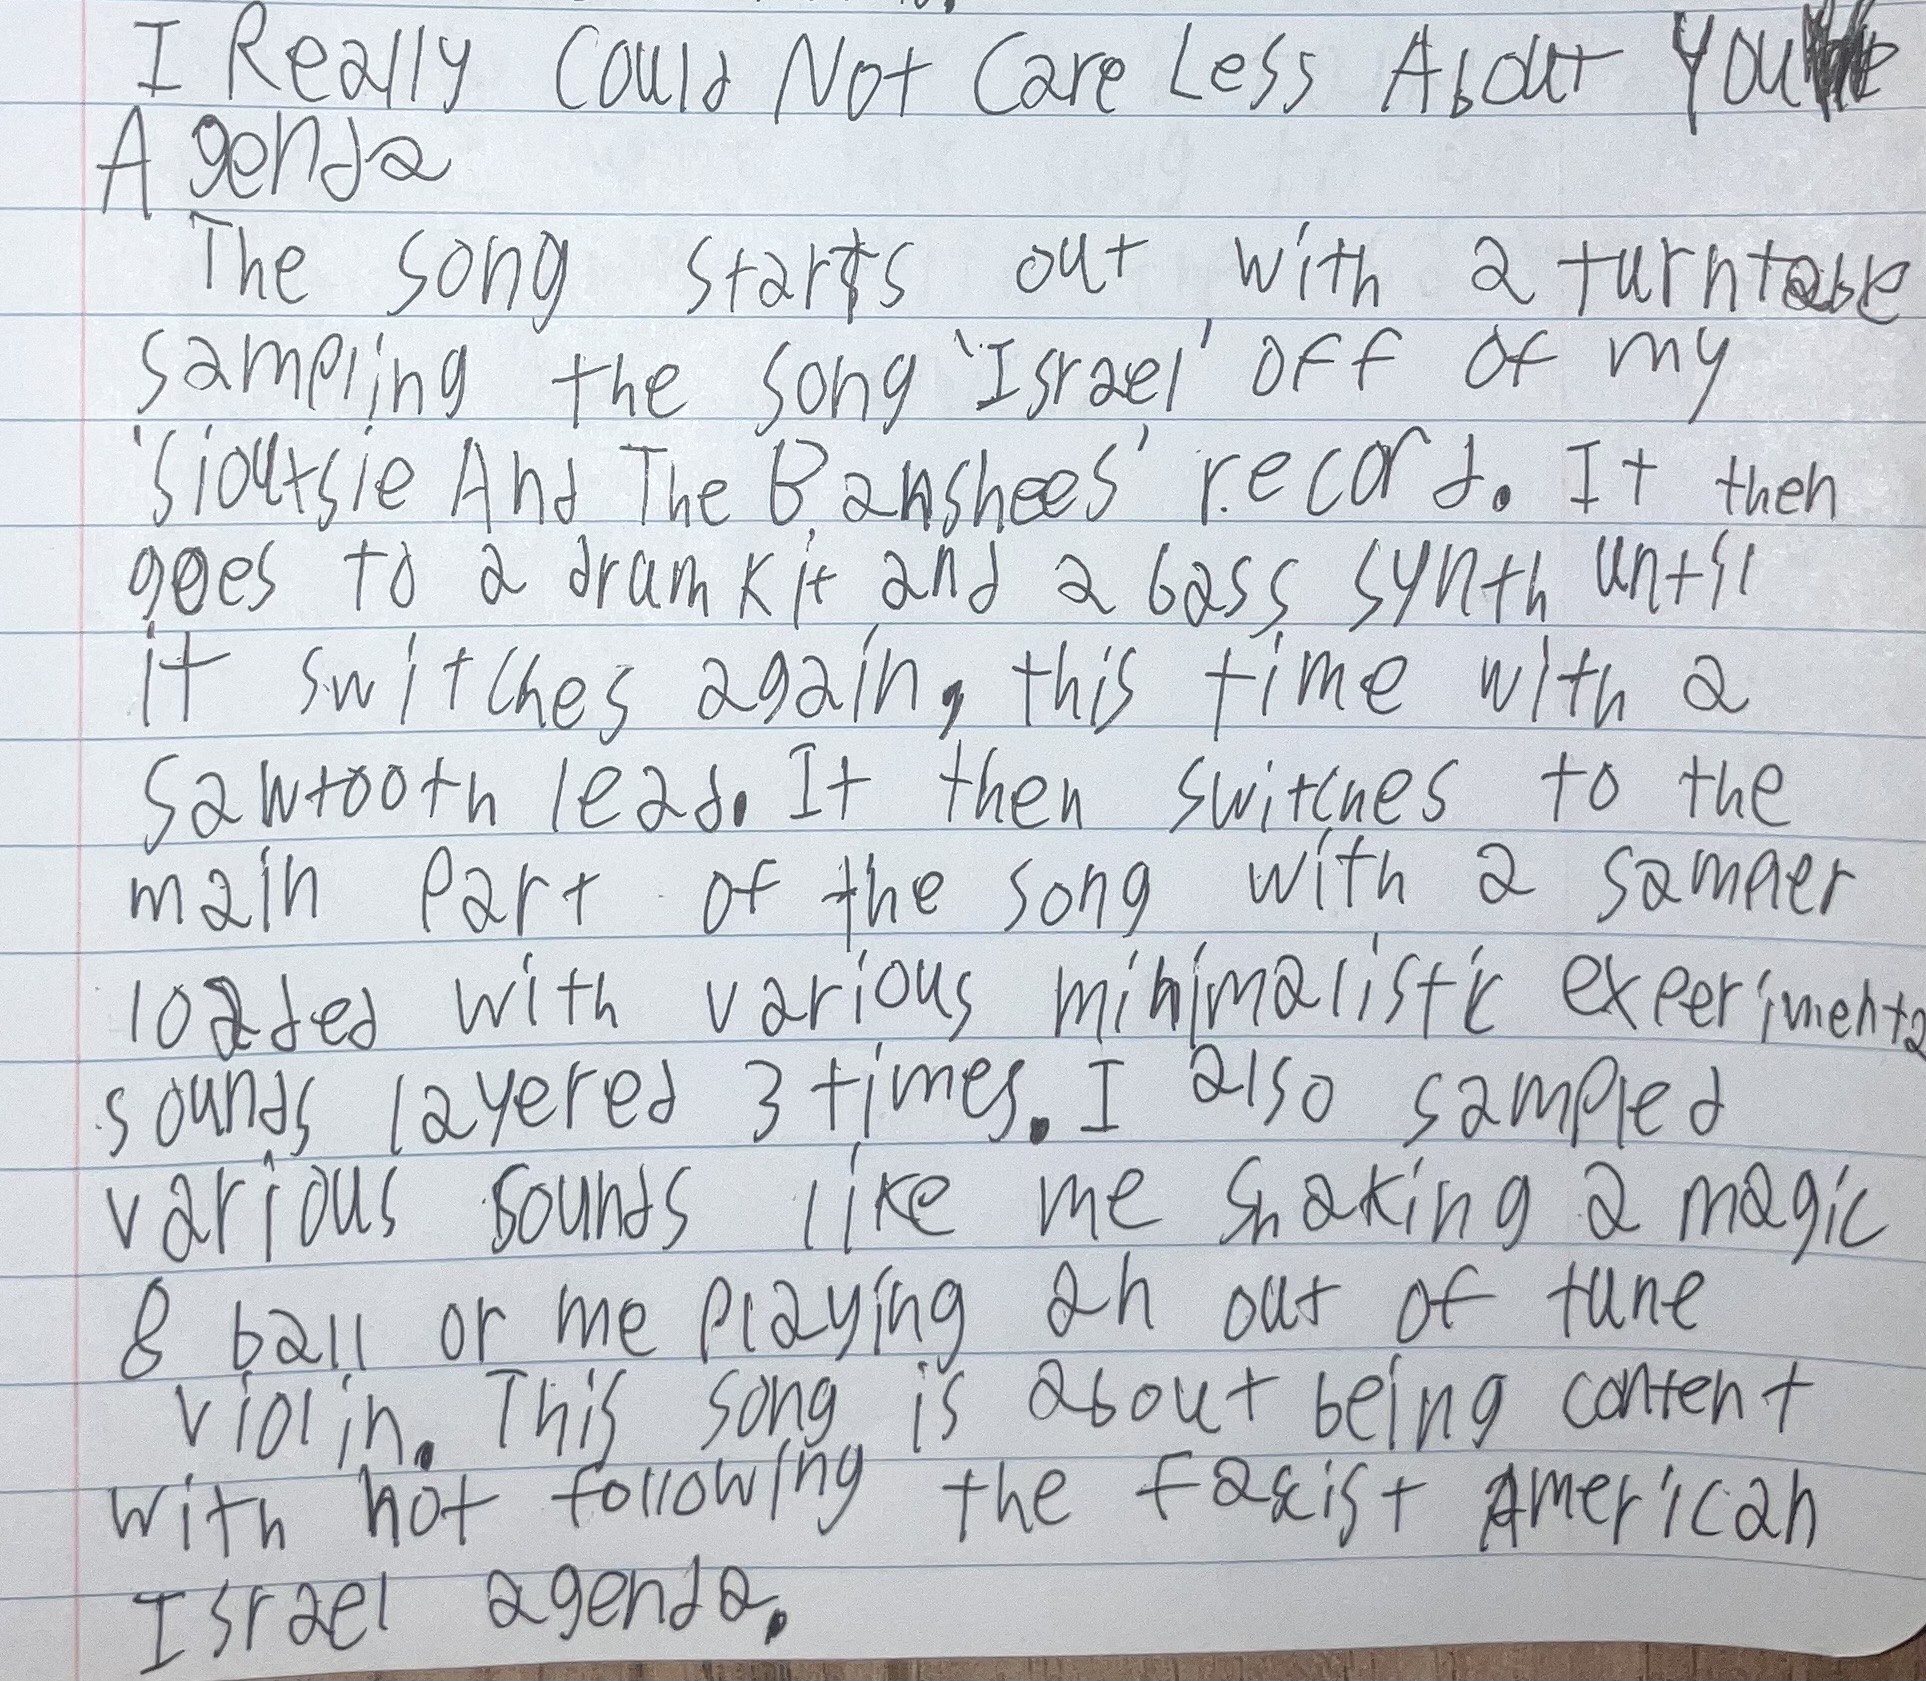 I Really Could Not Care Less About You
Agenda
The song starts out with a turntable
sampling the song 'Israel' off of my
'Sioutsie And The Banshees' record. It then
goes to a drum kit and a bass synth until
it switches again, this time with a
sawtooth lead. It then switches to the
main part of the song with a sampler
loaded with various minimalistic experimental
sounds layered 3 times. I also sampled
various sounds like me shaking a magic
8 ball or me playing an out of tune
violin. This song is about being content
with not following the facist American
Israel agenda.